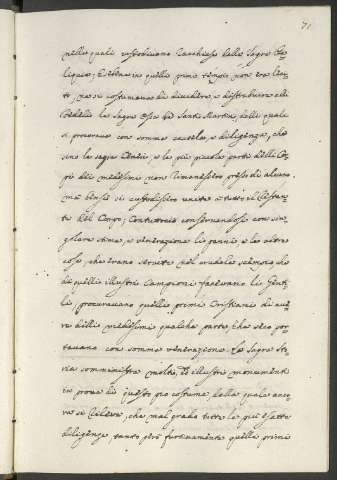 71
nelle quali custodivano racchiuse delle Sagre Re-
liquie; E sebene in quelli primi tempi non era leci-
to, ne si costumava di dividere, e distribuire alli
Fedeli le Sagre Ossa de Santi Martiri, delli quali
si procurava con somma cautela, e diligenza, che
sino le sagre Ceneri, e le più piccole parti delli Cor-
pi dei medesimi non rimanessero presso di alcuno.
ma bensì si custodissero unite a tutto il restan-
te del Corpo; Contuttociò conservandosi con sin-
golare stima, e venerazione li panni, e le altre
cose, che erano servite nel crudele scempio che
di quelli illustri Campioni facevano li Genti-
li procuravano quelli primi Cristiani di ave-
re delli medesimi qualche parte, che seco por-
tavano con somma venerazione. La Sagra Sto-
ria somministra molti, ed illustri monumenti
in prova di questo pio costume, dalla quale anco-
ra si rileva, che mal grado tutte le più esatte
diligenze tanto però fortunamente quelli primi